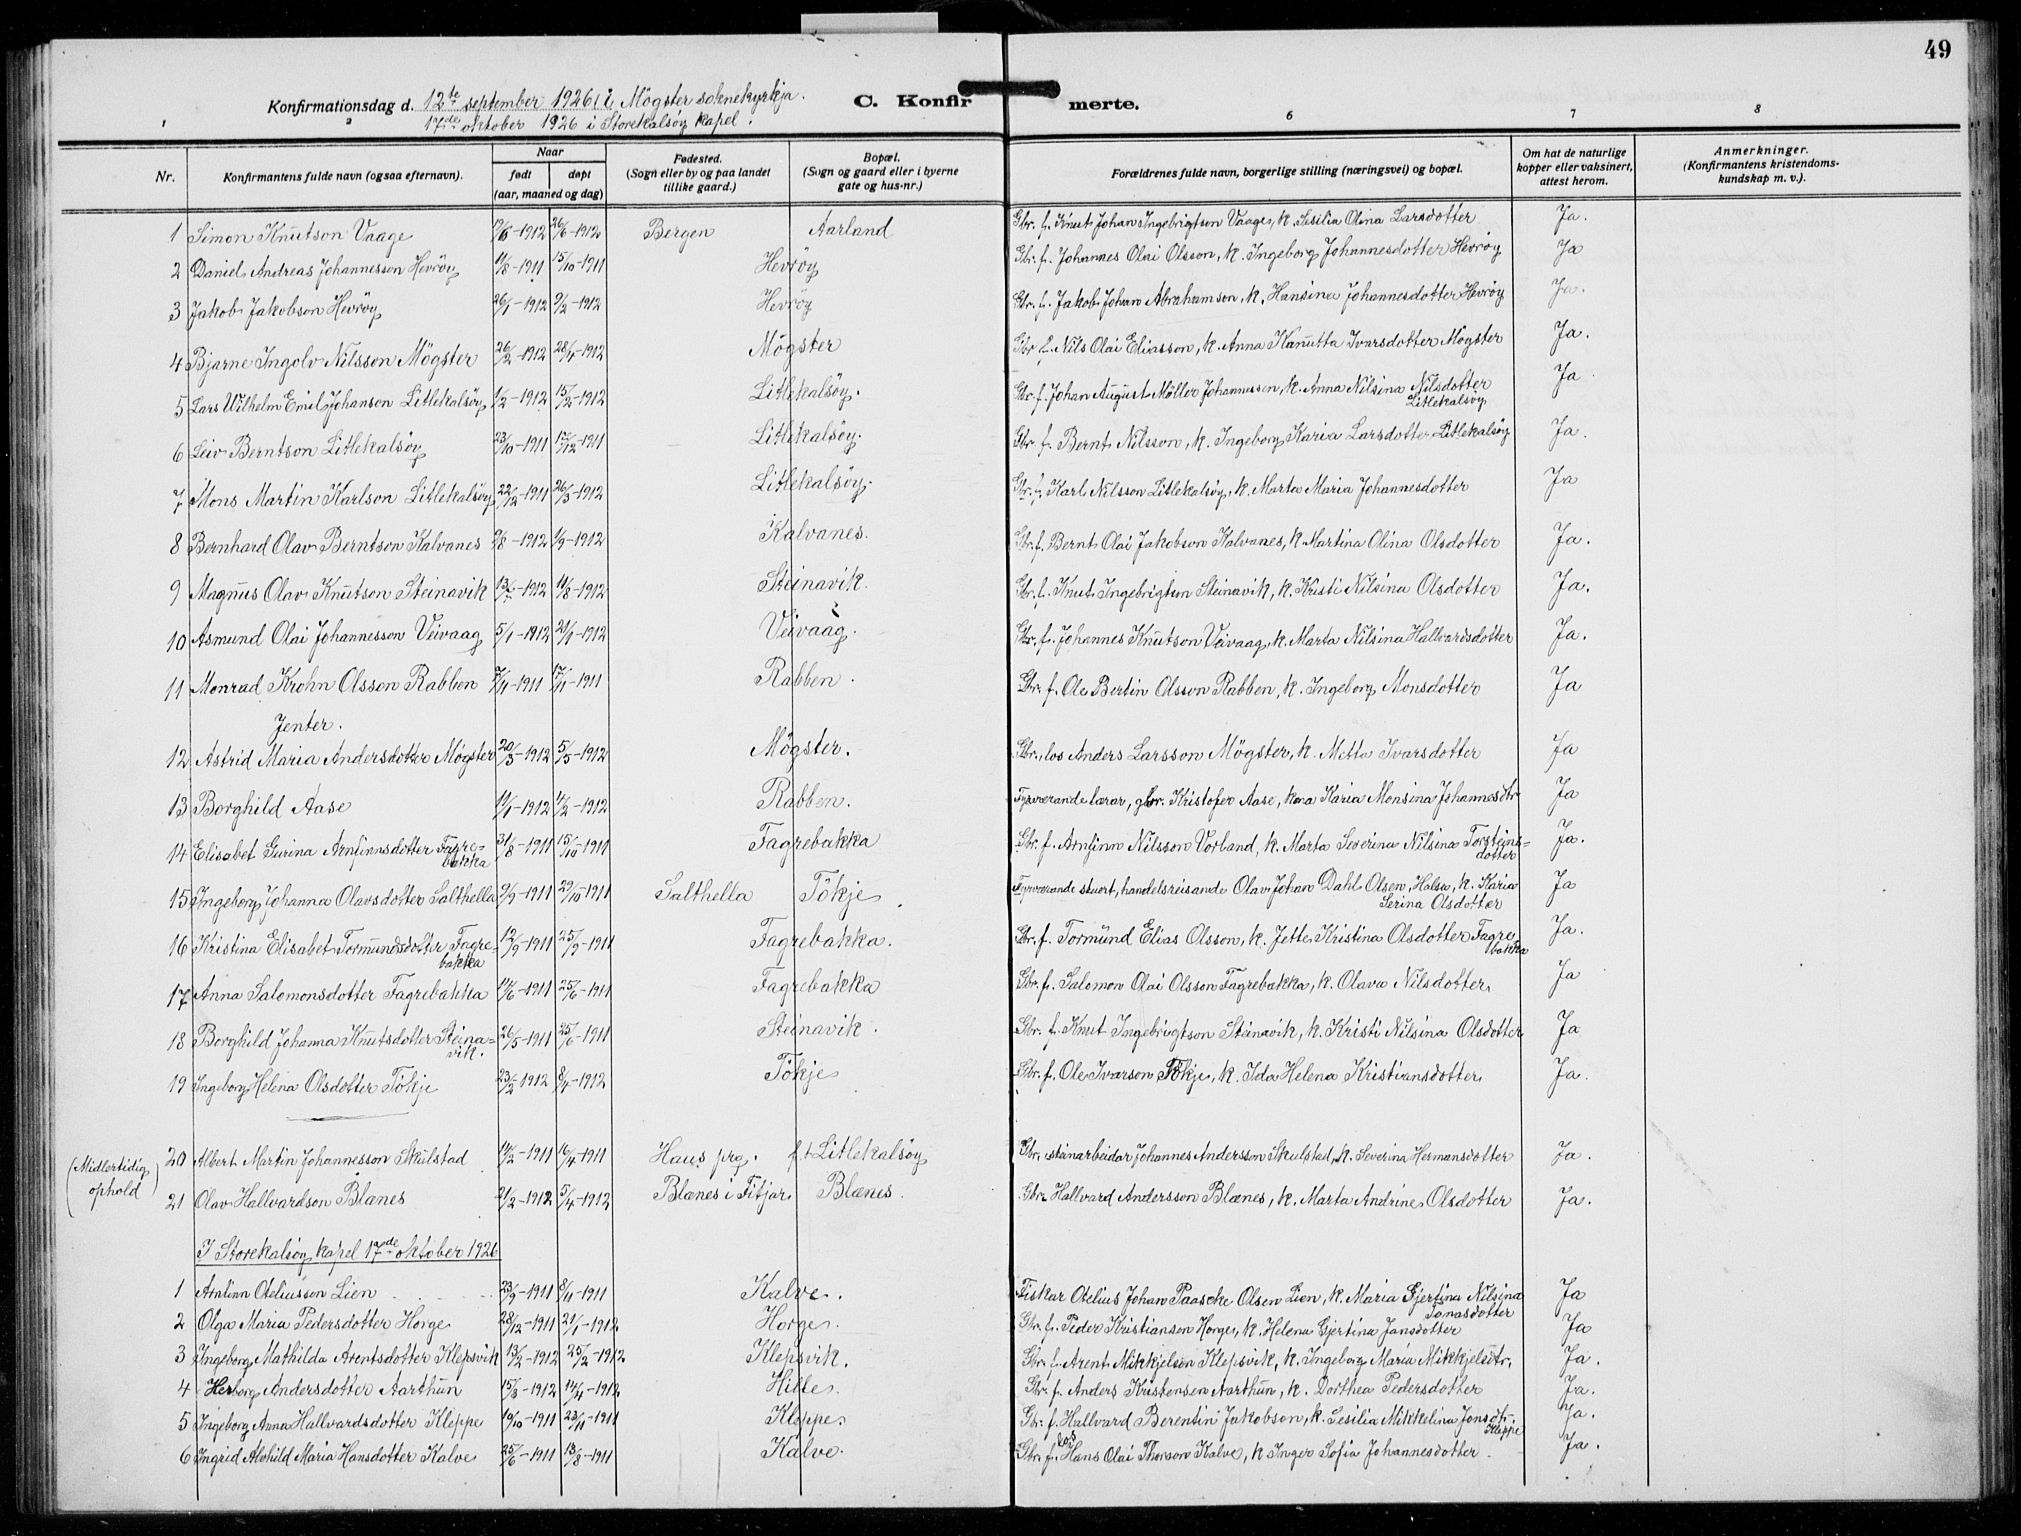 49
Konfirmationsdag d. 12te september 1926 i Mögster soknekyrkja.
17de oktober 1926 i Storekalsöy kapel.
C. Konfirmerte.
1 2 6 7 8
Nr. Konfirmantens fulde navn (ogsaa efternavn). Naar født døpt (aar, maaned og dag) Fødested. (Sogn eller by og paa landet tillike gaard.) Bopæl. (Sogn og gaard eller i byerne gate og hus-nr.) Forældrenes fulde navn, borgerlige stilling (næringsvei) og bopæl. Om hat de naturlige kopper eller vaksinert, attest herom. Anmerkninger. (Konfirmantens kristendoms-kundskap m. v.).
1 Simon Knutson Vaage 17/6-1912 26/6-1912 Bergen Aarland Gbr. f. Knut Johan Ingebrigtson Vaage, k. Sesilia Olina Larsdotter Ja.
2 Daniel Andreas Johannesson Hevröy 11/8-1911 15/10-1911 Hevröy Gbr. f. Johannes Olai Olsson, k. Ingeborg Johannesdotter Hevröy Ja
3 Jakob Jakobson Hevröy 26/1-1912 9/2-1912 Hevröy Gbr. f. Jakob Johan Abrahamson, k. Hansina Johannesdotter Hevröy Ja.
4 Bjarne Ingolv Nilsson Mögster 26/2-1912 28/4-1912 Mögster Gbr. f. Nils Olai Eliasson, k. Anna Kanutta Ivarsdotter Mögster Ja.
5 Lars Wilhelm Emil Johanson Litlekalsöy 1/2-1912 15/2-1912 Litlekalsöy. Gbr. f. Johan August Möller Johannesson, k. Anna Nilsina Nilsdotter Litlekalsöy Ja.
6 Leiv Berntson Litlekalsöy 23/10-1911 17/12-1911 Litlekalsöy. Gbr. f. Bernt Nilsson, k. Ingeborg Karia Larsdotter Litlekalsöy Ja.
7 Mons Martin Karlson Litlekalsöy 22/12-1911 26/3-1912 Litlekalsöy. Gbr. f. Karl Nilsson Litlekalsöy, k. Marta Maria Johannesdotter Ja
8 Bernhard Olav Berntson Kalvanes /8-1912 1/9-1912 Kalvanes. Gbr. f. Bernt Olai Jakobson Kalvanes, k. Martina Olina Olsdotter Ja.
9 Magnus Olav Knutson Steinavik 13/7-1912 11/8-1912 Steinavik. Gbr. f. Knut Ingebrigtson Steinavik, k. Kristi Nilsina Olsdotter Ja.
10 Asmund Olai Johannesson Veivaag 5/1-1912 21/1-1912 Veivaag. Gbr. f. Johannes Knutson Veivaag, k. Marta Nilsina Hallvardsdotter Ja.
11 Monrad Krohn Olsson Rabben 7/11-1911 17/11-1911 Rabben. Gbr. f. Ole Bertin Olsson Rabben, k. Ingeborg Monsdotter Ja
Jenter.
12 Astrid Maria Andersdotter Mögster 20/3-1912 5/5-1912 Mögster. Gbr., los Anders Larsson Mögster, k. Metta Ivarsdotter Ja
13 Borghild Aase 11/1-1912 11/2-1912 Rabben. Fyrverande lærar, gbr. Kristofer Aase, kona Karia Monsina Johannesdtr Ja
14 Elisabet Gurina Arnfinnsdotter Fagrebakka 31/8-1911 15/10-1911 Fagrebakka Gbr. f. Arnfinn Nilsson Vorland, k. Marta Severina Nilsina Torsteinsdotter Ja.
15 Ingeborg Johanna Olavsdotter Salthella 9/9-1911 29/10-1911 Salthella Tökje. Fyrverande stuert, handelsreisande Olav Johan Dahl Olsen, Halsen, k. Karia Serina Olsdotter Ja
16 Kristina Elisabet Tormundsdotter Fagrebakka 12/9-1911 25/9-1911 Fagrebakka. Gbr. f. Tormund Elias Olsson, k. Jette Kristina Olsdotter Fagrebakka Ja.
17 Anna Salomonsdotter Fagrebakka 14/6-1911 25/6-1911 Fagrebakka Gbr. f. Salomon Olai Olsson Fagrebakka, k. Olava Nilsdotter Ja
18 Borghild Johanna Knutsdotter Steinavik. 26/5-1911 25/6-1911 Steinavik. Gbr. f. Knut Ingebrigtson Steinavik, k. Kristi Nilsina Olsdotter Ja
19 Ingeborg Helena Olsdotter Tökje 23/2-1912 8/4-1912 Tökje Gbr. f. Ole Ivarson Tökje, k. Ida Helena Kristiansdotter Ja.
20 Albert Martin Johannesson Skulstad 14/2-1911 16/4-1911 Haus prg. f.t. Litlekalsöy Gbr., steinarbeidar Johannes Andersson Skulstad, k. Severina Hermansdotter Ja.
(Midlertidig ophold)
21 Olav Hallvardson Blænes 21/2-1912 5/4-1912 Blænes i Fitjar Blænes. Gbr. Hallvard Andersson Blænes, k. Marta Andrine Olsdotter Ja.
I Storekalsöy kapel 17de oktober 1926
1 Arnfinn Oteliusson Lien 23/9-1911 8/11-1911 Kalve. Fiskar Otelius Johan Paasche Olsen Lien, k. Maria Gjertina Nilsina Jonasdotter Ja
2 Olga Maria Pedersdotter Horge 28/12-1911 21/1-1912 Horge. Gbr. f. Peder Kristianson Horge, k. Helena Gjertina Jansdotter Ja
3 Ingeborg Mathilda Arentsdotter Klepsvik 13/2-1912 25/2-1912 Klepsvik. Gbr. f. Arent Mikkjelson Klepsvik, k. Ingeborg Maria Mikkjelsdtr. Ja.
4 Herborg Andersdotter Aarthun 15/3-1912 14/4-1912 Hille. Gbr. f. Anders Kristensen Aarthun, k. Dorthea Pedersdotter Ja.
5 Ingeborg Anna Hallvardsdotter Kleppe 19/10-1911 23/11-1911 Kleppe. Gbr. f. Hallvard Berentin Jakobson, k. Sesilia Mikkelina Jonsdtr. Kleppe Ja.
6 Ingrid Alvhild Maria Hansdotter Kalve 25/6-1911 13/8-1911 Kalve. Gbr. f. los Hans Olai Thorson Kalve, k. Inger Sofia Johannesdotter Ja.